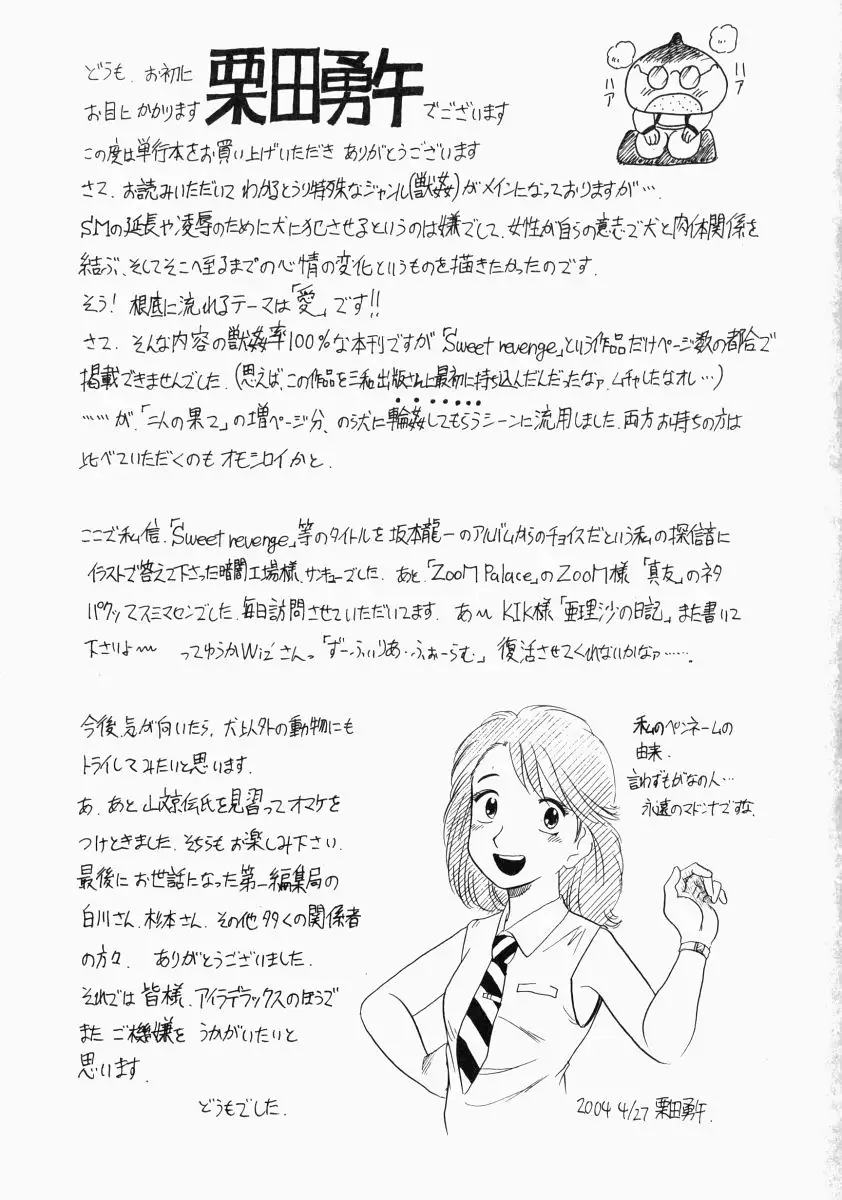 どうも、お初に
お目にかかります 栗田勇午 でございます
ハア
ハア
この度は単行本をお買い上げいただき ありがとうございます
さて、お読みいただいて わかるとうり特殊なジャンル(獣姦)がメインになっておりますが…。
SMの延長や凌辱のために犬に犯させるというのは嫌でして、女性が自らの意志で犬と肉体関係を
結ぶ、そしてそこへ至るまでの心情の変化というものを描きたかったのです.
そう! 根底に流れるテーマは「愛」です!!
さて、そんな内容の獣姦率100%な本刊ですが「Sweet revenge」という作品だけページ数の都合で
掲載できませんでした.(思えば、この作品を三和出版さんに最初に持ち込んだんだったなァ.ムチャしたなオレ…)
……が、「二人の果て」の増ページ分、のら犬に輪姦してもらうシーンに流用しました.両方お持ちの方は
比べていただくのも オモシロイかと.
ここで私信.「Sweet revenge」等のタイトルを坂本龍一のアルバムからのチョイスだという私の探信音に
イラストで答えて下さった暗闇工場様、サンキューでした. あと「ZooM Palace」のZooM様「真友」のネタ
パクッてスミマセンでした.毎日訪問させていただいてます. あ〜 KIK様「亜理沙の日記」また書いて
下さいよ〜 ってゆうかWiz'さんっ「ずーふぃりあ・ふぉーらむ」復活させてくれないかなァ…….
今後、気が向いたら、犬以外の動物にも
トライしてみたいと思います.
あ、あと山文京伝氏を見習ってオマケを
つけときました.そちらも お楽しみ下さい.
最後に お世話になった第一編集局の
白川さん、杉本さん、その他 多くの関係者
の方々. ありがとうございました.
それでは 皆様、アイラデラックスのほうで
また ご機嫌を うかがいたいと
思います.
どうもでした.
私のペンネームの
由来.
言わずもがなの人…
永遠のマドンナですな.
2004 4/27 栗田勇午.